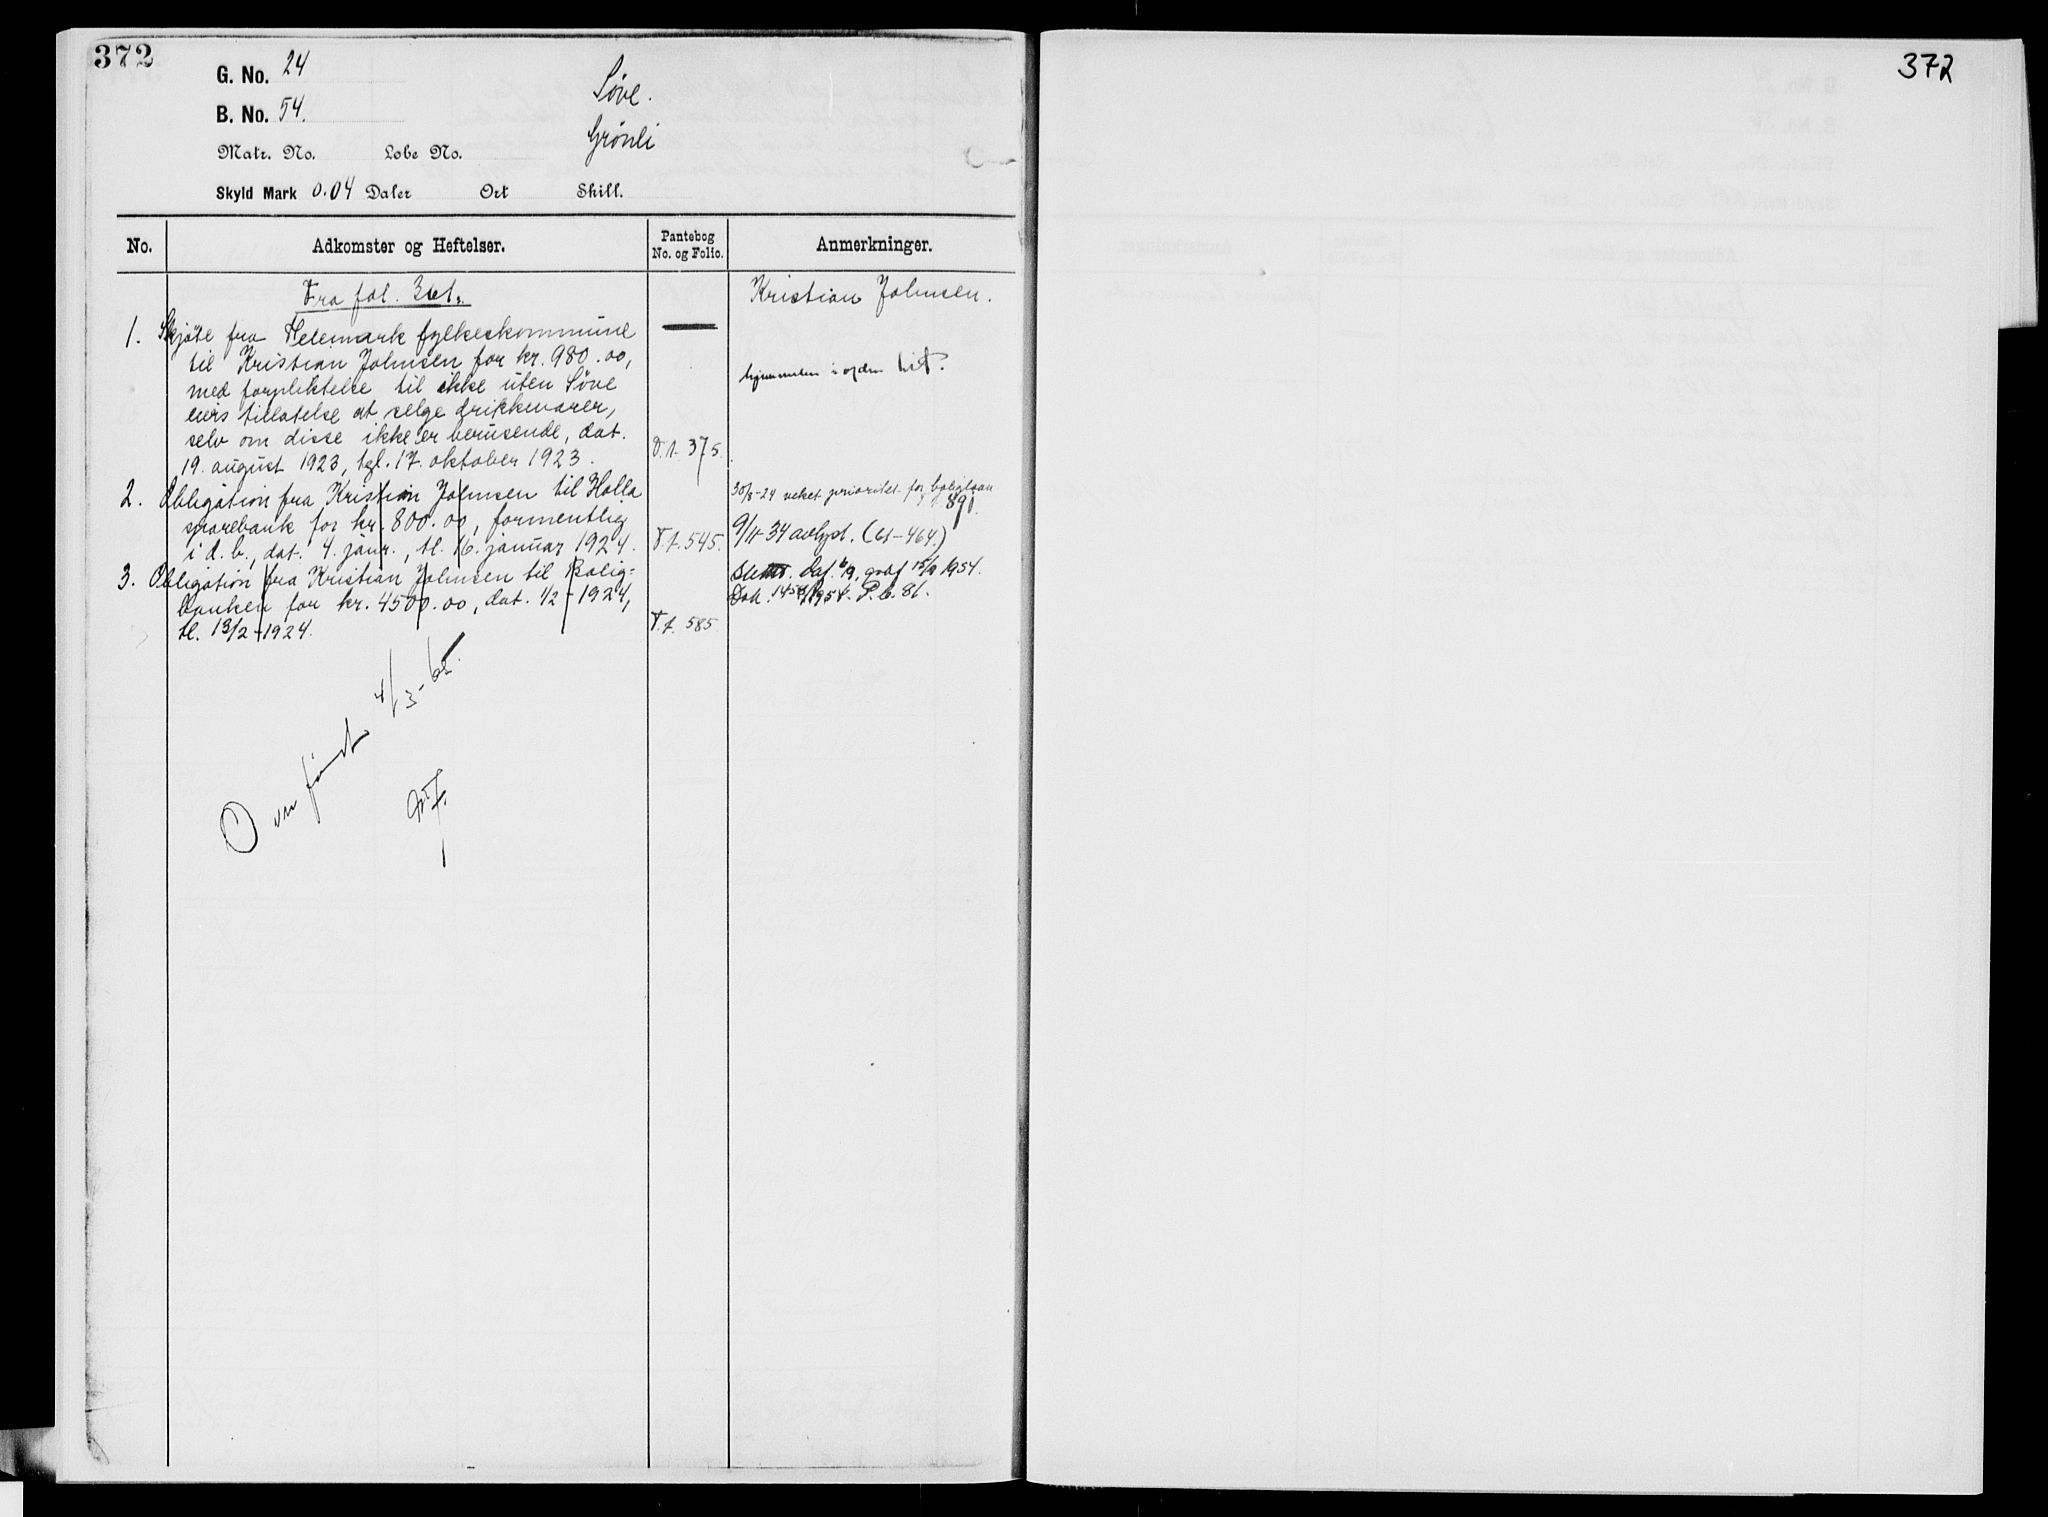 372
G. No. 24
B. No. 54.
Søve.
Grönli
Matr. No. Løbe No.
Skyld Mark 0.04 Daler Ort Skill.
No. Adkomster og Heftelser. Pantebog No. og Folio. Anmerkninger.
Fra fol. 361.
Kristian Johnsen.
1. Skjöte fra Telemark fylkeskommune
til Kristian Johnsen for kr. 980.00,
med forpliktelse til ikke uten Söve
eiers tillatelse at selge drikkevarer,
selv om disse ikke er berusende, dat.
19. august 1923, tgl. 17. oktober 1923. 375.
hjemmelen i orden
2. Obligation fra Kristian Johnsen til Holla
sparebank for kr. 800.00, formentlig
i d. b., dat. 4. janr., tl. 16. januar 1924. 545.
30/8-24 veket prioritet for boliglaan
890.
9/11-34 avlyst. (61-464.)
3. Obligation fra Kristian Johnsen til Bolig=
banken for kr. 4500.00, dat. 1/2-1924,
tl. 13/2-1924. 585.
1954.
Dok. 1954. P.b. 81.
Overført 4/3-62.
372